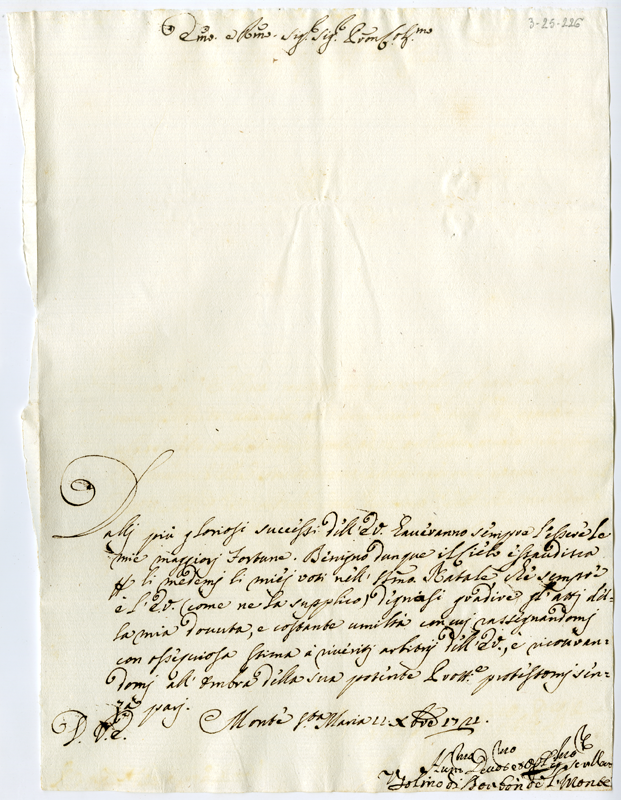 3-25-226
Emo. e Rmo. Sigr. Sigr. Pron Colmo
Dalli più gloriosi successi dell'E.V. haveranno sempre l'essere le
mie maggiori Fortune. Benigno dunque il Cielo esaudisca
li medemi li miei voti nell' Natale che sempre
è l'E.V. (come ne la supplico) degnasi gradire gl'atti del-
la mia dovuta, e costante umiltà con cui rassegnandomi
con ossequiosa stima a riveriti arbitrij dell'E.V., e ricovran-
domi all'ombra della sua potente Prott.e protestomi sen-
za pari.
D. V. E. Monte Sta Maria Xbre
di Borbon del Monte